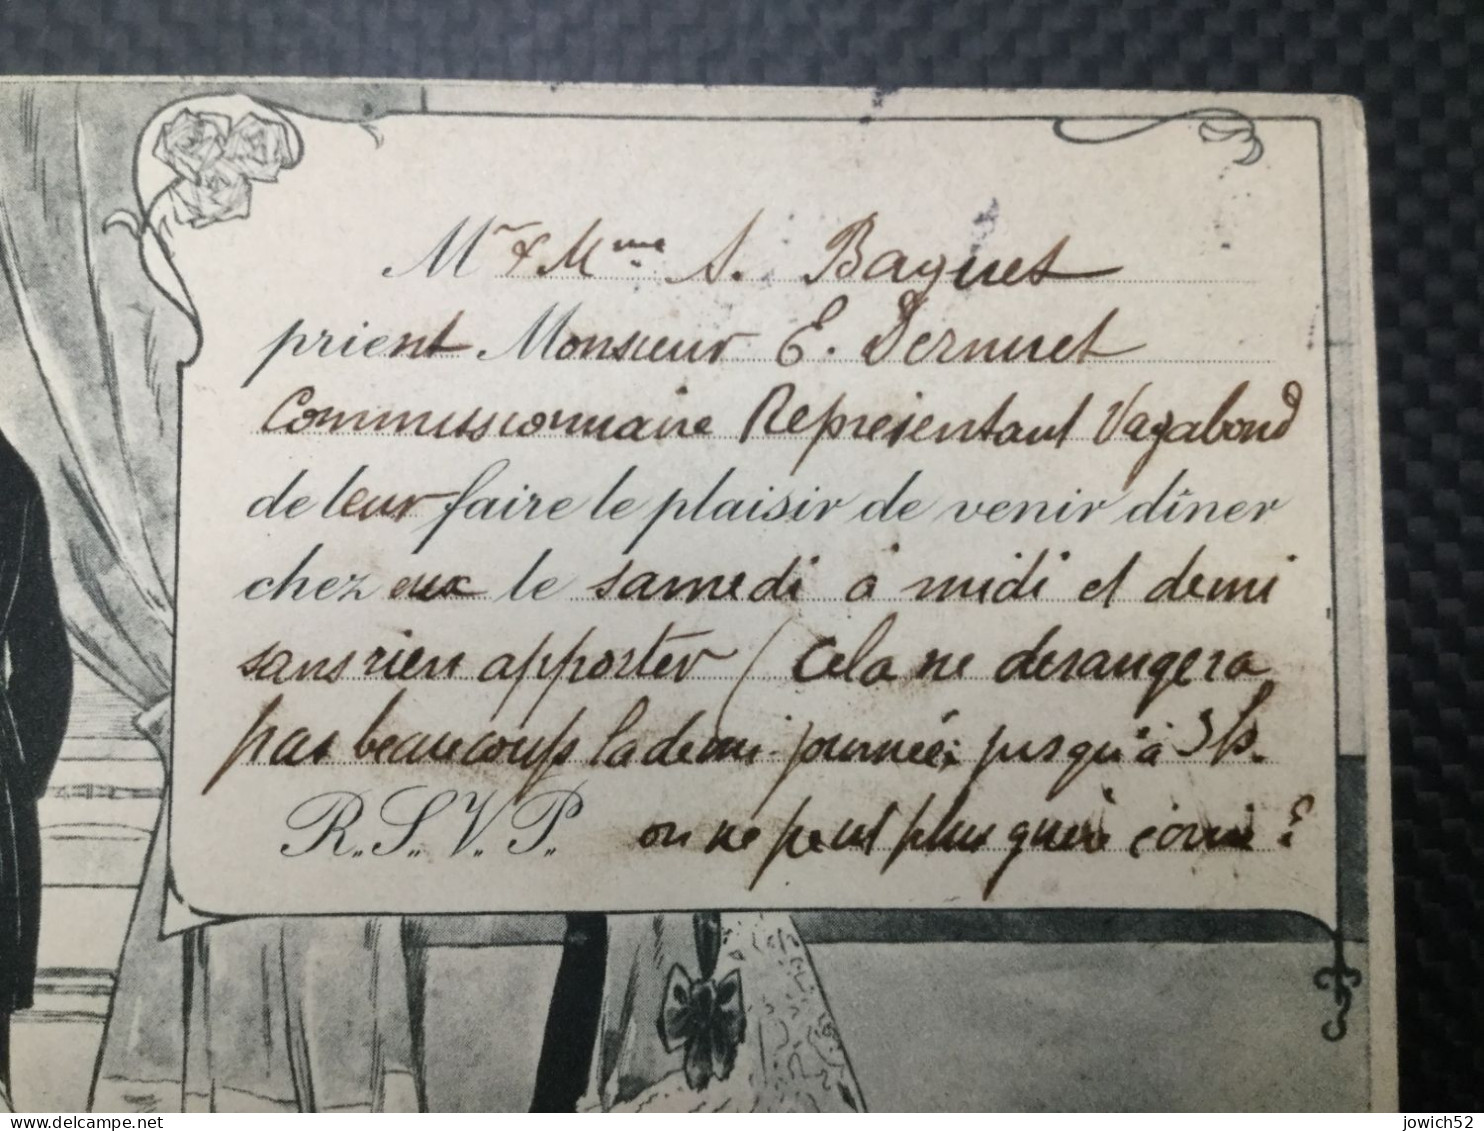 Mr & Mme A. Baquet
prient Monsieur E. Dernuet
Commissionnaire Représentant Vagabond
de leur faire le plaisir de venir dîner
chez eux le samedi à midi et demi
sans rien apporter (Cela ne derangera
pas beaucoup la demi-journée; jusqu'à 3h.
R.S.V.P. on ne peut plus guère
jowich52